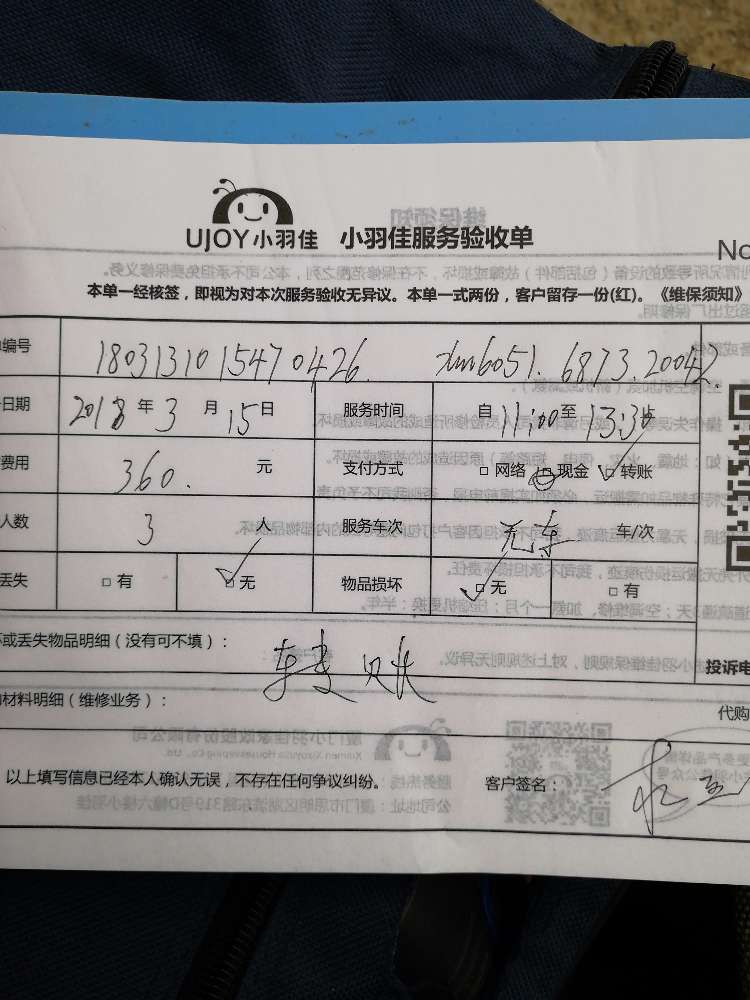 UJOY小羽佳 小羽佳服务验收单
No
本单一经核签，即视为对本次服务验收无异议。本单一式两份，客户留存一份(红)。《维保须知》
编号 1803131015470426. xm6051.6873.20042
日期 2018年3月15日 服务时间 自11:00至13:30止
费用 360. 元 支付方式 □网络 □现金 □转账
人数 3 人 服务车次 无车 车/次
丢失 □有 □无 物品损坏 □无 □有
坏或丢失物品明细（没有可不填）：
投诉电
材料明细（维修业务）：
代购
以上填写信息已经本人确认无误，不存在任何争议纠纷。 客户签名：